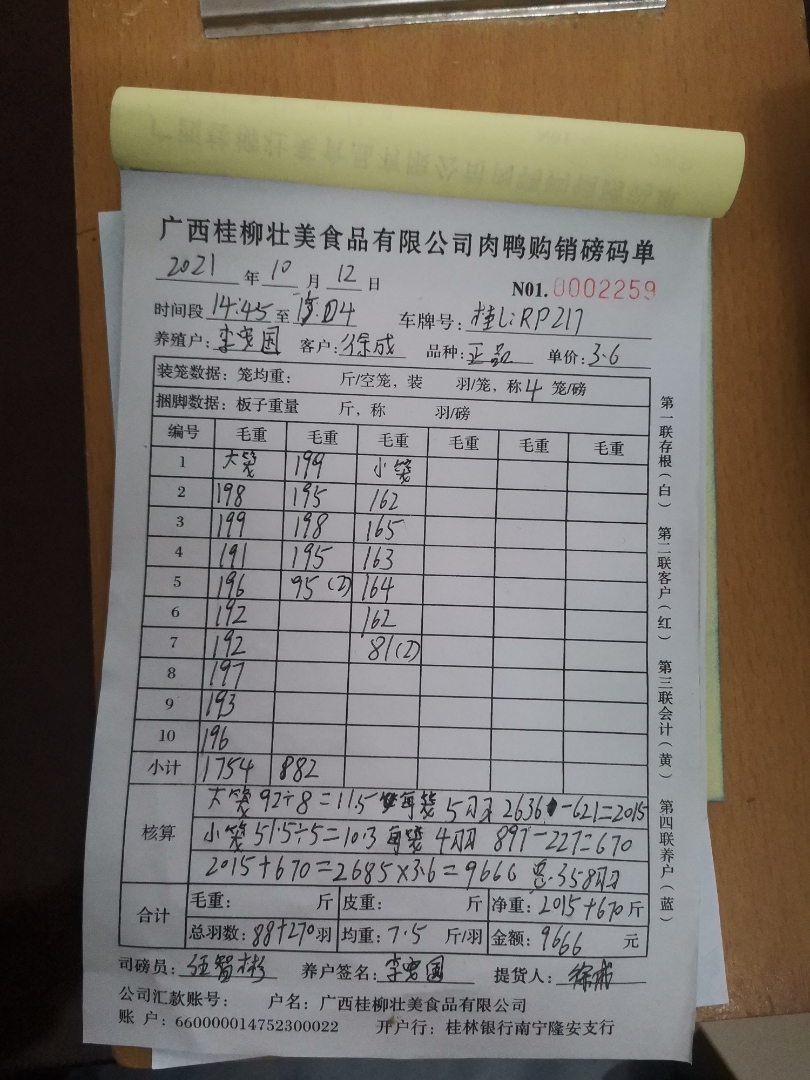 广西桂柳壮美食品有限公司肉鸭购销磅码单
2021 年 10 月 12 日
N01. 0002259
时间段 14:45 至 15:04 车牌号: 桂L:RP217
养殖户: 李宏国 客户: 徐成 品种: 正品 单价: 3.6
装笼数据: 笼均重: 斤/空笼, 装 羽/笼, 称 4 笼/磅
捆脚数据: 板子重量 斤, 称 羽/磅
编号 毛重 毛重 毛重 毛重 毛重 毛重
1 大笼 199 小笼
2 198 195 162
3 199 198 165
4 191 195 163
5 196 95(2) 164
6 192 162
7 192 81(2)
8 197
9 193
10 196
小计 1754 882
核算
大笼 92÷8=11.5 每笼 5羽 2636-621=2015
小笼 51.5÷5=10.3 每笼 4羽 897-227=670
2015+670=2685×3.6=9666 总.358羽
合计 毛重: 斤 皮重: 斤 净重: 2015+670 斤
总羽数: 88+270 羽 均重: 7.5 斤/羽 金额: 9666 元
司磅员: 伍智彬 养户签名: 李宏国 提货人: 徐成
公司汇款账号: 户名: 广西桂柳壮美食品有限公司
账 户: 660000014752300022 开户行: 桂林银行南宁隆安支行
第一联存根(白) 第二联客户(红) 第三联会计(黄) 第四联养户(蓝)